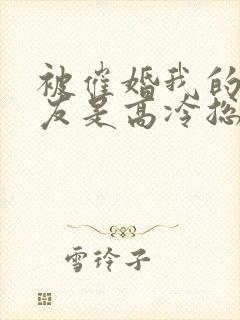 被催婚我的
友是高冷总
雪玲子